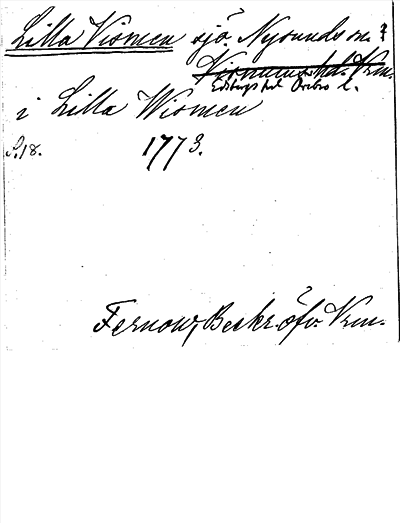 Lilla Vismen sjö Nysunds sn. ?
Visnums hd. Vrm.
Edsbergs hd Örebro l.
i Lilla Wismen
S. 18. 1773.
Fernow, Beskr. öfv. Vrm.